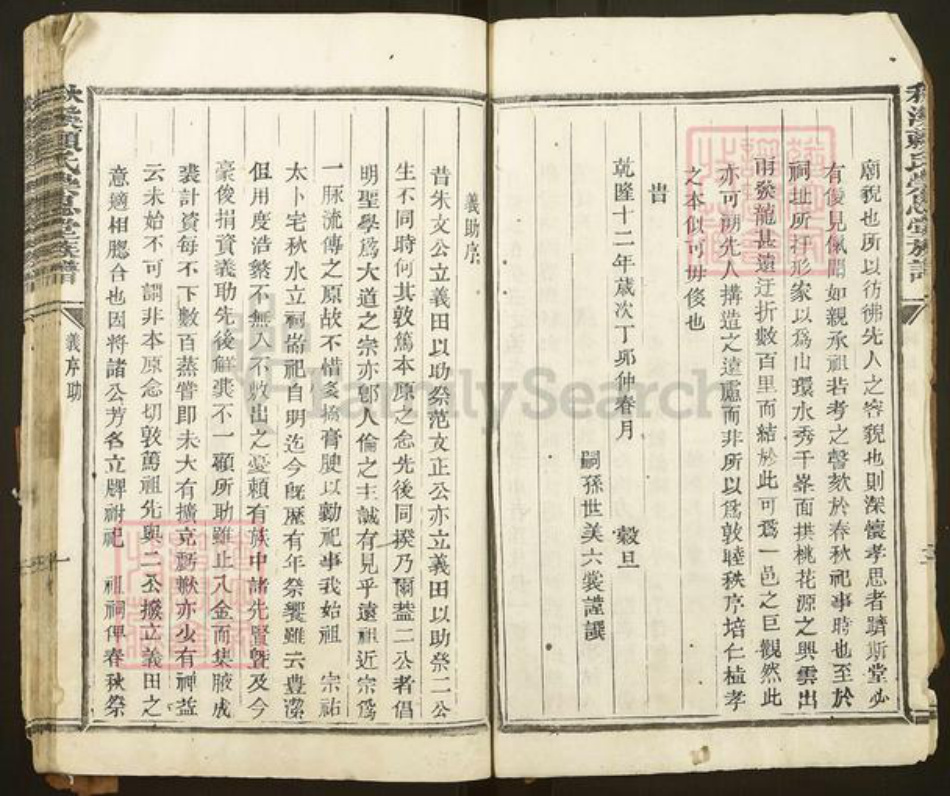 廟貌也所以彷彿先人之容貌也則深懷孝思者躋斯堂必
有僾見愾聞如親承祖若考之謦欬於春秋祀事時也至於
祠址所拜形家以爲山環水秀千峯面拱桃花源之興雲出
雨發龍甚遠迂折數百里而結於此可爲一邑之巨觀然此
亦可溯先人搆造之遠慮而非所以爲敦睦秩序培仁植孝
之本似可毋後也
旹
乾隆十二年歲次丁卯仲春月 穀旦
嗣孫世美六裳謹譔
義助序
昔朱文公立義田以助祭范文正公亦立義田以助祭二公
生不同時何其敦篤本原之念先後同揆乃爾葢二公者倡
明聖學爲大道之宗亦卽人倫之主誠有見乎遠祖近宗爲
一脉流傳之原故不惜多捐膏腴以勷祀事我始祖 宗祐
太卜宅秋水立祠崇祀自明迄今旣歷有年祭饗雖云豊潔
但用度浩繁不無入不敷出之憂賴有族中諸先賢曁及今
豪俊捐資義助先後鮮裘不一顧所助雖止八金而集腋成
裘計資每不下數百蒸嘗即未大有擴充髙嶽亦少有裨益
云未始不可謂非本原念切敦篤祖先與二公撥立義田之
意適相脗合也因將諸公芳名立牌祔祀 祖祠俾春秋祭
秋溪賴氏崇思堂族譜
義序助
FamilySearch